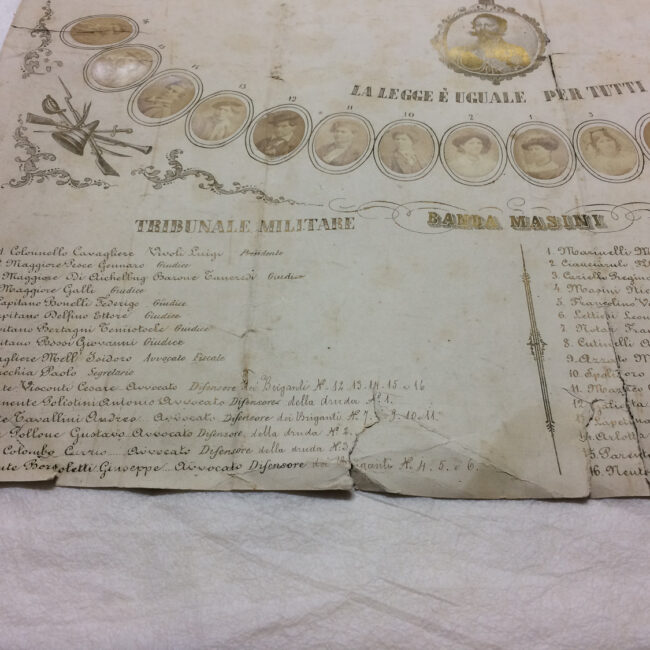 16
15
14
13
12
11
10
2
1
3
LA LEGGE È UGUALE PER TUTTI
TRIBUNALE MILITARE
BANDA MASINY
1 Colonnello Cavagliere Vivoli Luigi Presidente
Maggiore Pesce Gennaro Giudice
Maggiore Di Aichelburg Barone Tancredi Giudice
Maggiore Galli Giudice
Capitano Bonelli Federigo Giudice
Capitano Delfino Ettore Giudice
Bertagni Temistocle Giudice
Possi Giovanni Giudice
Mell' Isidoro Avvocato Fiscale
Paolo Segretario
Visconti Cesare Avvocato Difensore dei Briganti N. 12. 13. 14. 15 e 16
Polistini Antonio Avvocato Difensore della druda N. 1.
Tavallini Andrea Avvocato Difensore dei Briganti N. 7. 9. 10 e 11.
Pollone Gustavo Avvocato Difensore della druda N. 2
Colombo Carrio Avvocato Difensore della druda N. 3
Bortoletti Giuseppe Avvocato Difensore dei Briganti N. 4. 5. e 6.
1. Marinelli M
2
3. Cariello Regina
4. Masini Nic
5. Francolino Vi
6. Lettieri Leon
7. Notar Fra
8. Cutinelli A
9.
10.
11.
12.
14. Arlotta
15. Parente
16.